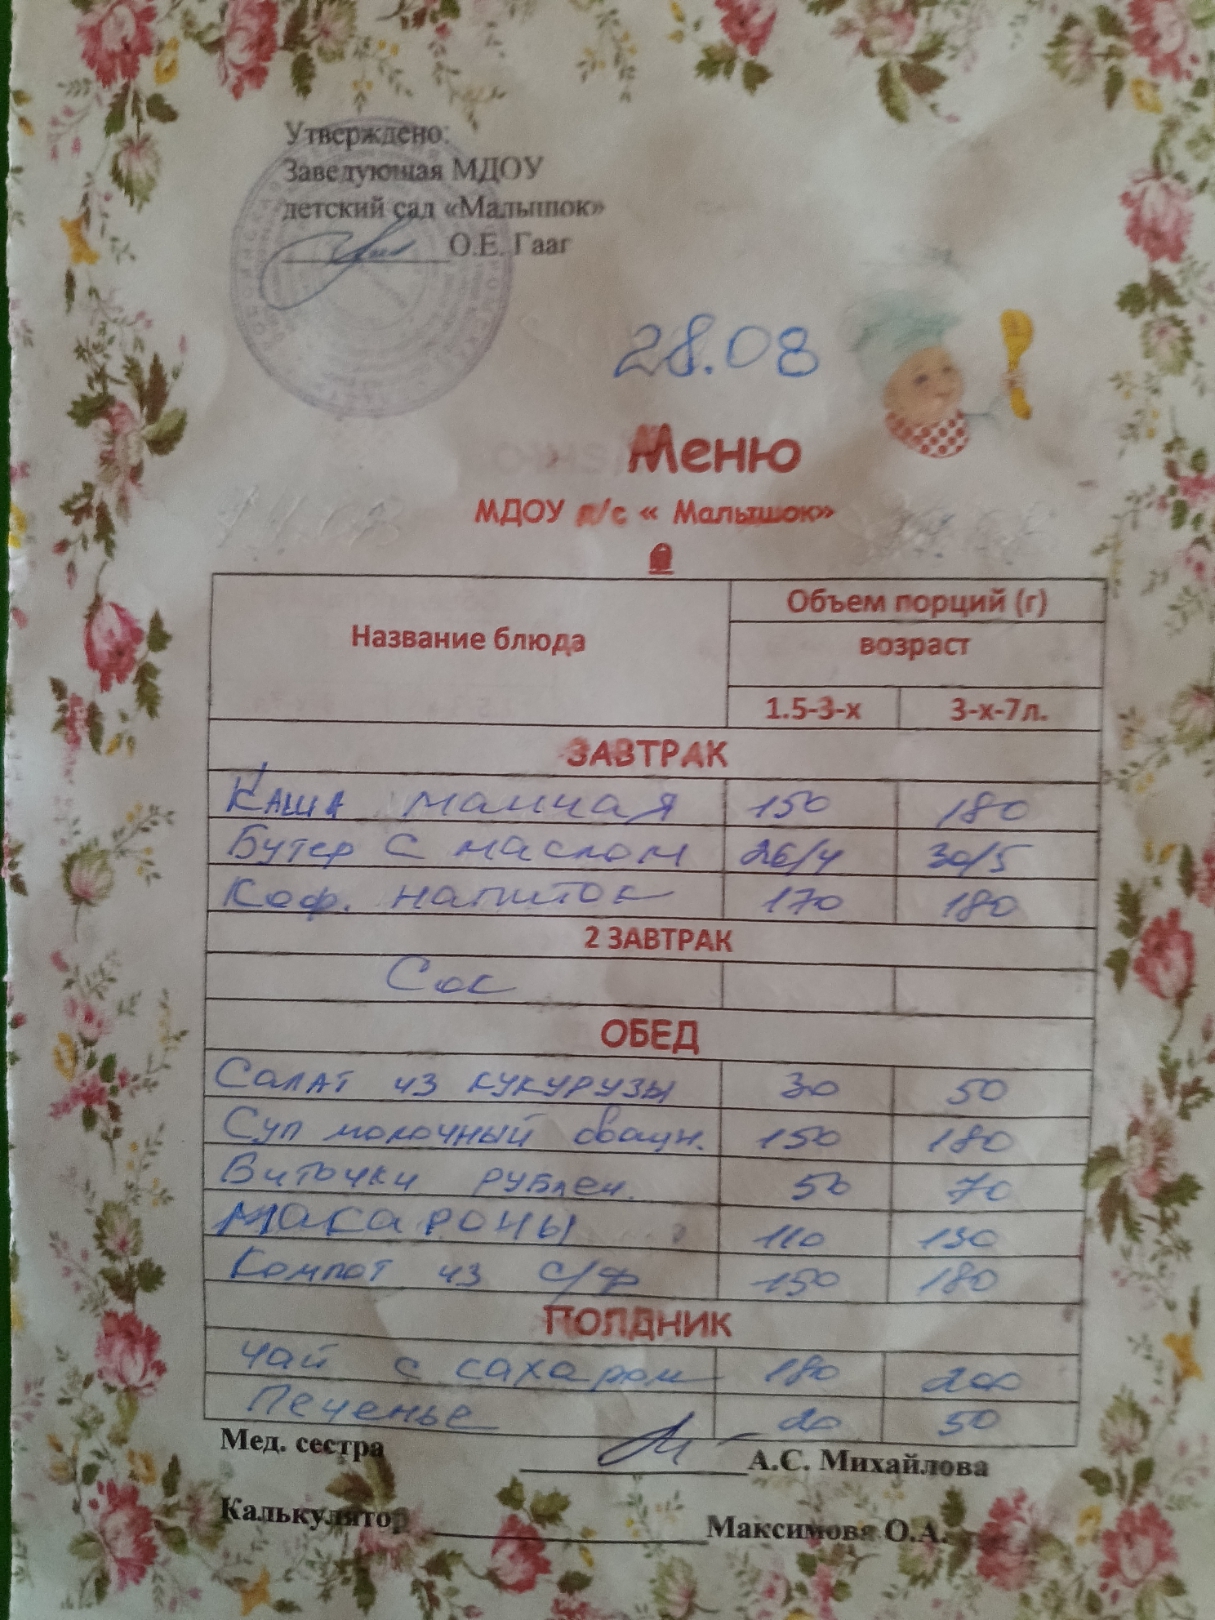 Утверждено:
Заведующая МДОУ
детский сад «Малышок»
О.Е. Гааг
28.08
Меню
МДОУ д/с « Малышок»
Название блюда
Объем порций (г)
возраст
1.5-3-х 3-х-7л.
ЗАВТРАК
Каша манная 150 180
Бутер с маслом 26/4 30/5
Коф. напиток 170 180
2 ЗАВТРАК
Сок
ОБЕД
Салат из кукурузы 30 50
Суп молочный 150 180
Биточки рублен. 50 70
Макароны 110 130
Компот из с/ф 150 180
ПОЛДНИК
Чай с сахаром 180 200
Печенье 20 50
Мед. сестра А.С. Михайлова
Калькулятор Максимова О.А.